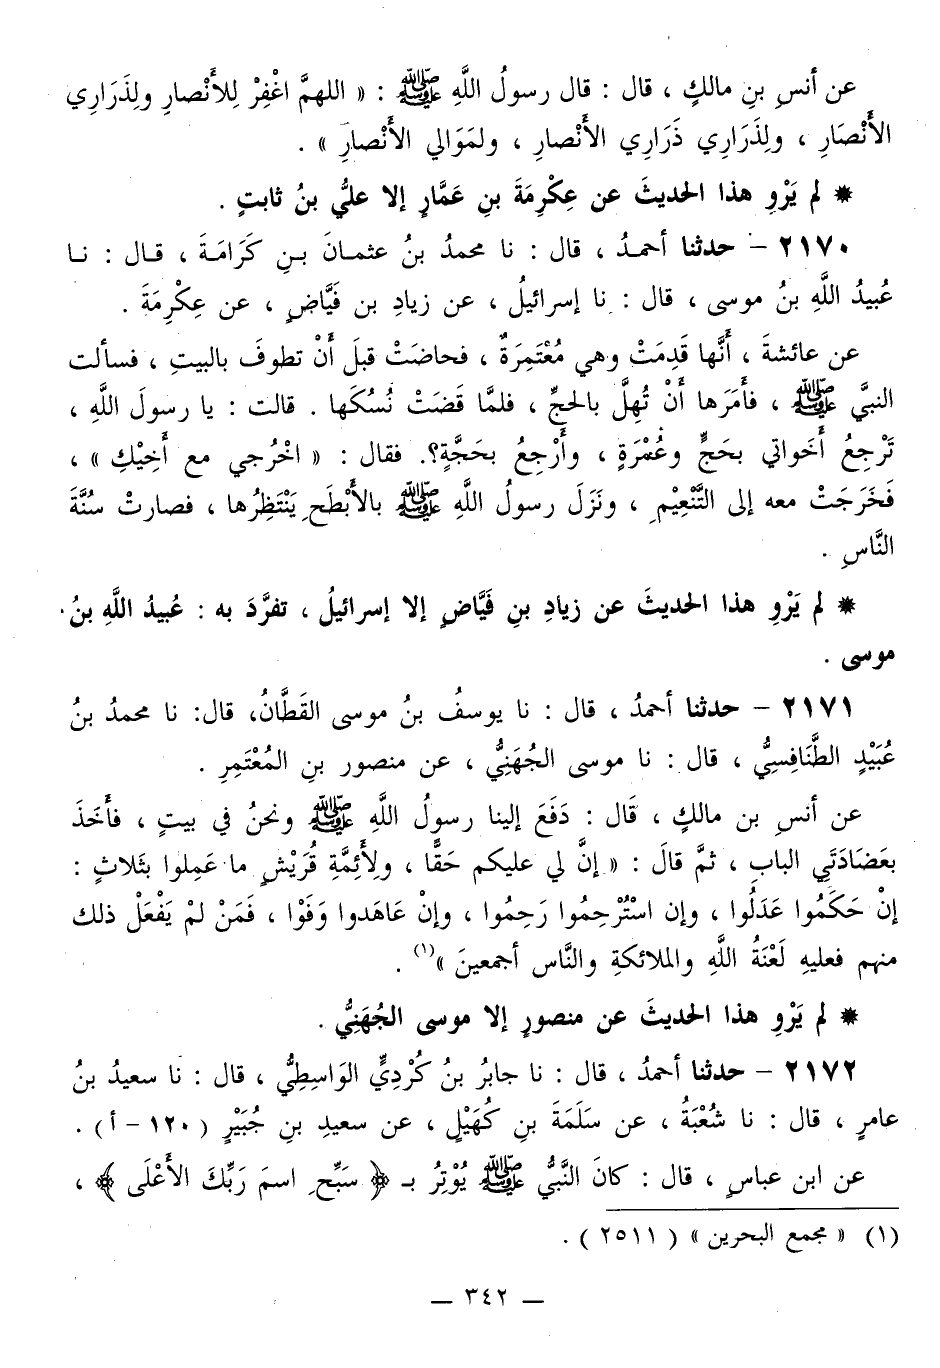 عن أنسِ بنِ مالكٍ ، قال : قال رسولُ اللَّهِ ﷺ : « اللهمَّ اغْفِرْ لِلأَنْصارِ ولِذَرَارِي
الأَنْصَارِ ، ولِذَرَارِي ذَرَارِي الأَنْصارِ ، ولمَوَالي الأَنْصارِ » .
* لم يَرْوِ هذا الحديثَ عن عِكْرِمَةَ بنِ عَمَّارٍ إلا عليُّ بنُ ثابتٍ .
٢١٧٠ - حدثنا أحمدُ ، قال : نا محمدُ بنُ عثمانَ بنِ كَرَامَةَ ، قال : نا
عُبيدُ اللَّهِ بنُ موسى ، قال : نا إسرائيلُ ، عن زيادِ بن فَيَّاضٍ ، عن عِكْرِمَةَ .
عن عائشةَ ، أَنَّها قَدِمَتْ وهي مُعْتَمِرَةٌ ، فحاضَتْ قبلَ أَنْ تطوفَ بالبيتِ ، فسألت
النبيَّ ﷺ ، فأَمَرَها أَنْ تُهِلَّ بالحجِّ ، فلمَّا قَضَتْ نُسُكَها . قالت : يا رسولَ اللَّهِ ،
تَرْجِعُ أَخواتي بحَجٍّ وعُمْرَةٍ ، وأَرْجِعُ بحَجَّةٍ؟. فقال : « اخْرُجي مع أَخِيْكِ » ،
فَخَرَجَتْ معه إلى التَّنْعِيْمِ ، ونَزَلَ رسولُ اللَّهِ ﷺ بالأَبْطَحِ يَنْتَظِرُها ، فصارتْ سُنَّةَ
النَّاسِ .
* لم يَرْوِ هذا الحديثَ عن زيادِ بنِ فَيَّاضٍ إلا إسرائيلُ ، تفرَّدَ به : عُبيدُ اللَّهِ بنُ
موسى .
٢١٧١ - حدثنا أحمدُ ، قال : نا يوسفُ بنُ موسى القَطَّانُ، قال: نا محمدُ بنُ
عُبَيْدٍ الطَّنَافِسِيُّ ، قال : نا موسى الجُهَنِيُّ ، عن منصور بنِ المُعْتَمِرِ .
عن أنسِ بن مالكٍ ، قَال : دَفَعَ إلينا رسولُ اللَّهِ ﷺ ونحنُ في بيتٍ ، فأَخَذَ
بعَضَادَتَي البابِ ، ثمَّ قالَ : « إنَّ لي عليكم حَقًّا ، ولِأَئِمَّةِ قُرَيْشٍ ما عَمِلوا بثَلاثٍ :
إنْ حَكَمُوا عَدَلُوا ، وإن اسْتُرْحِمُوا رَحِمُوا ، وإنْ عَاهَدوا وَفَوْا ، فَمَنْ لمْ يَفْعَلْ ذلك
منهم فعليهِ لَعْنَةُ اللَّهِ والملائكةِ والنَّاس أجمعينَ »(١) .
* لم يَرْوِ هذا الحديثَ عن منصورٍ إلا موسى الجُهَنِيُّ .
٢١٧٢ - حدثنا أحمدُ ، قال : نا جابرُ بنُ كُرْدِيٍّ الوَاسِطِيُّ ، قال : نا سعيدُ بنُ
عامرٍ ، قال : نا شُعْبَةُ ، عن سَلَمَةَ بنِ كُهَيْلٍ ، عن سعيدِ بنِ جُبَيْرٍ ( ١٢٠ - أ ) .
عن ابن عباسٍ ، قال : كانَ النَّبيُّ ﷺ يُوْتِرُ بـ ﴿ سَبِّحِ اسمَ رَبِّكَ الأَعْلَى ﴾ ،
(١) « مجمع البحرين » ( ٢٥١١ ) .
— ٣٤٢ —